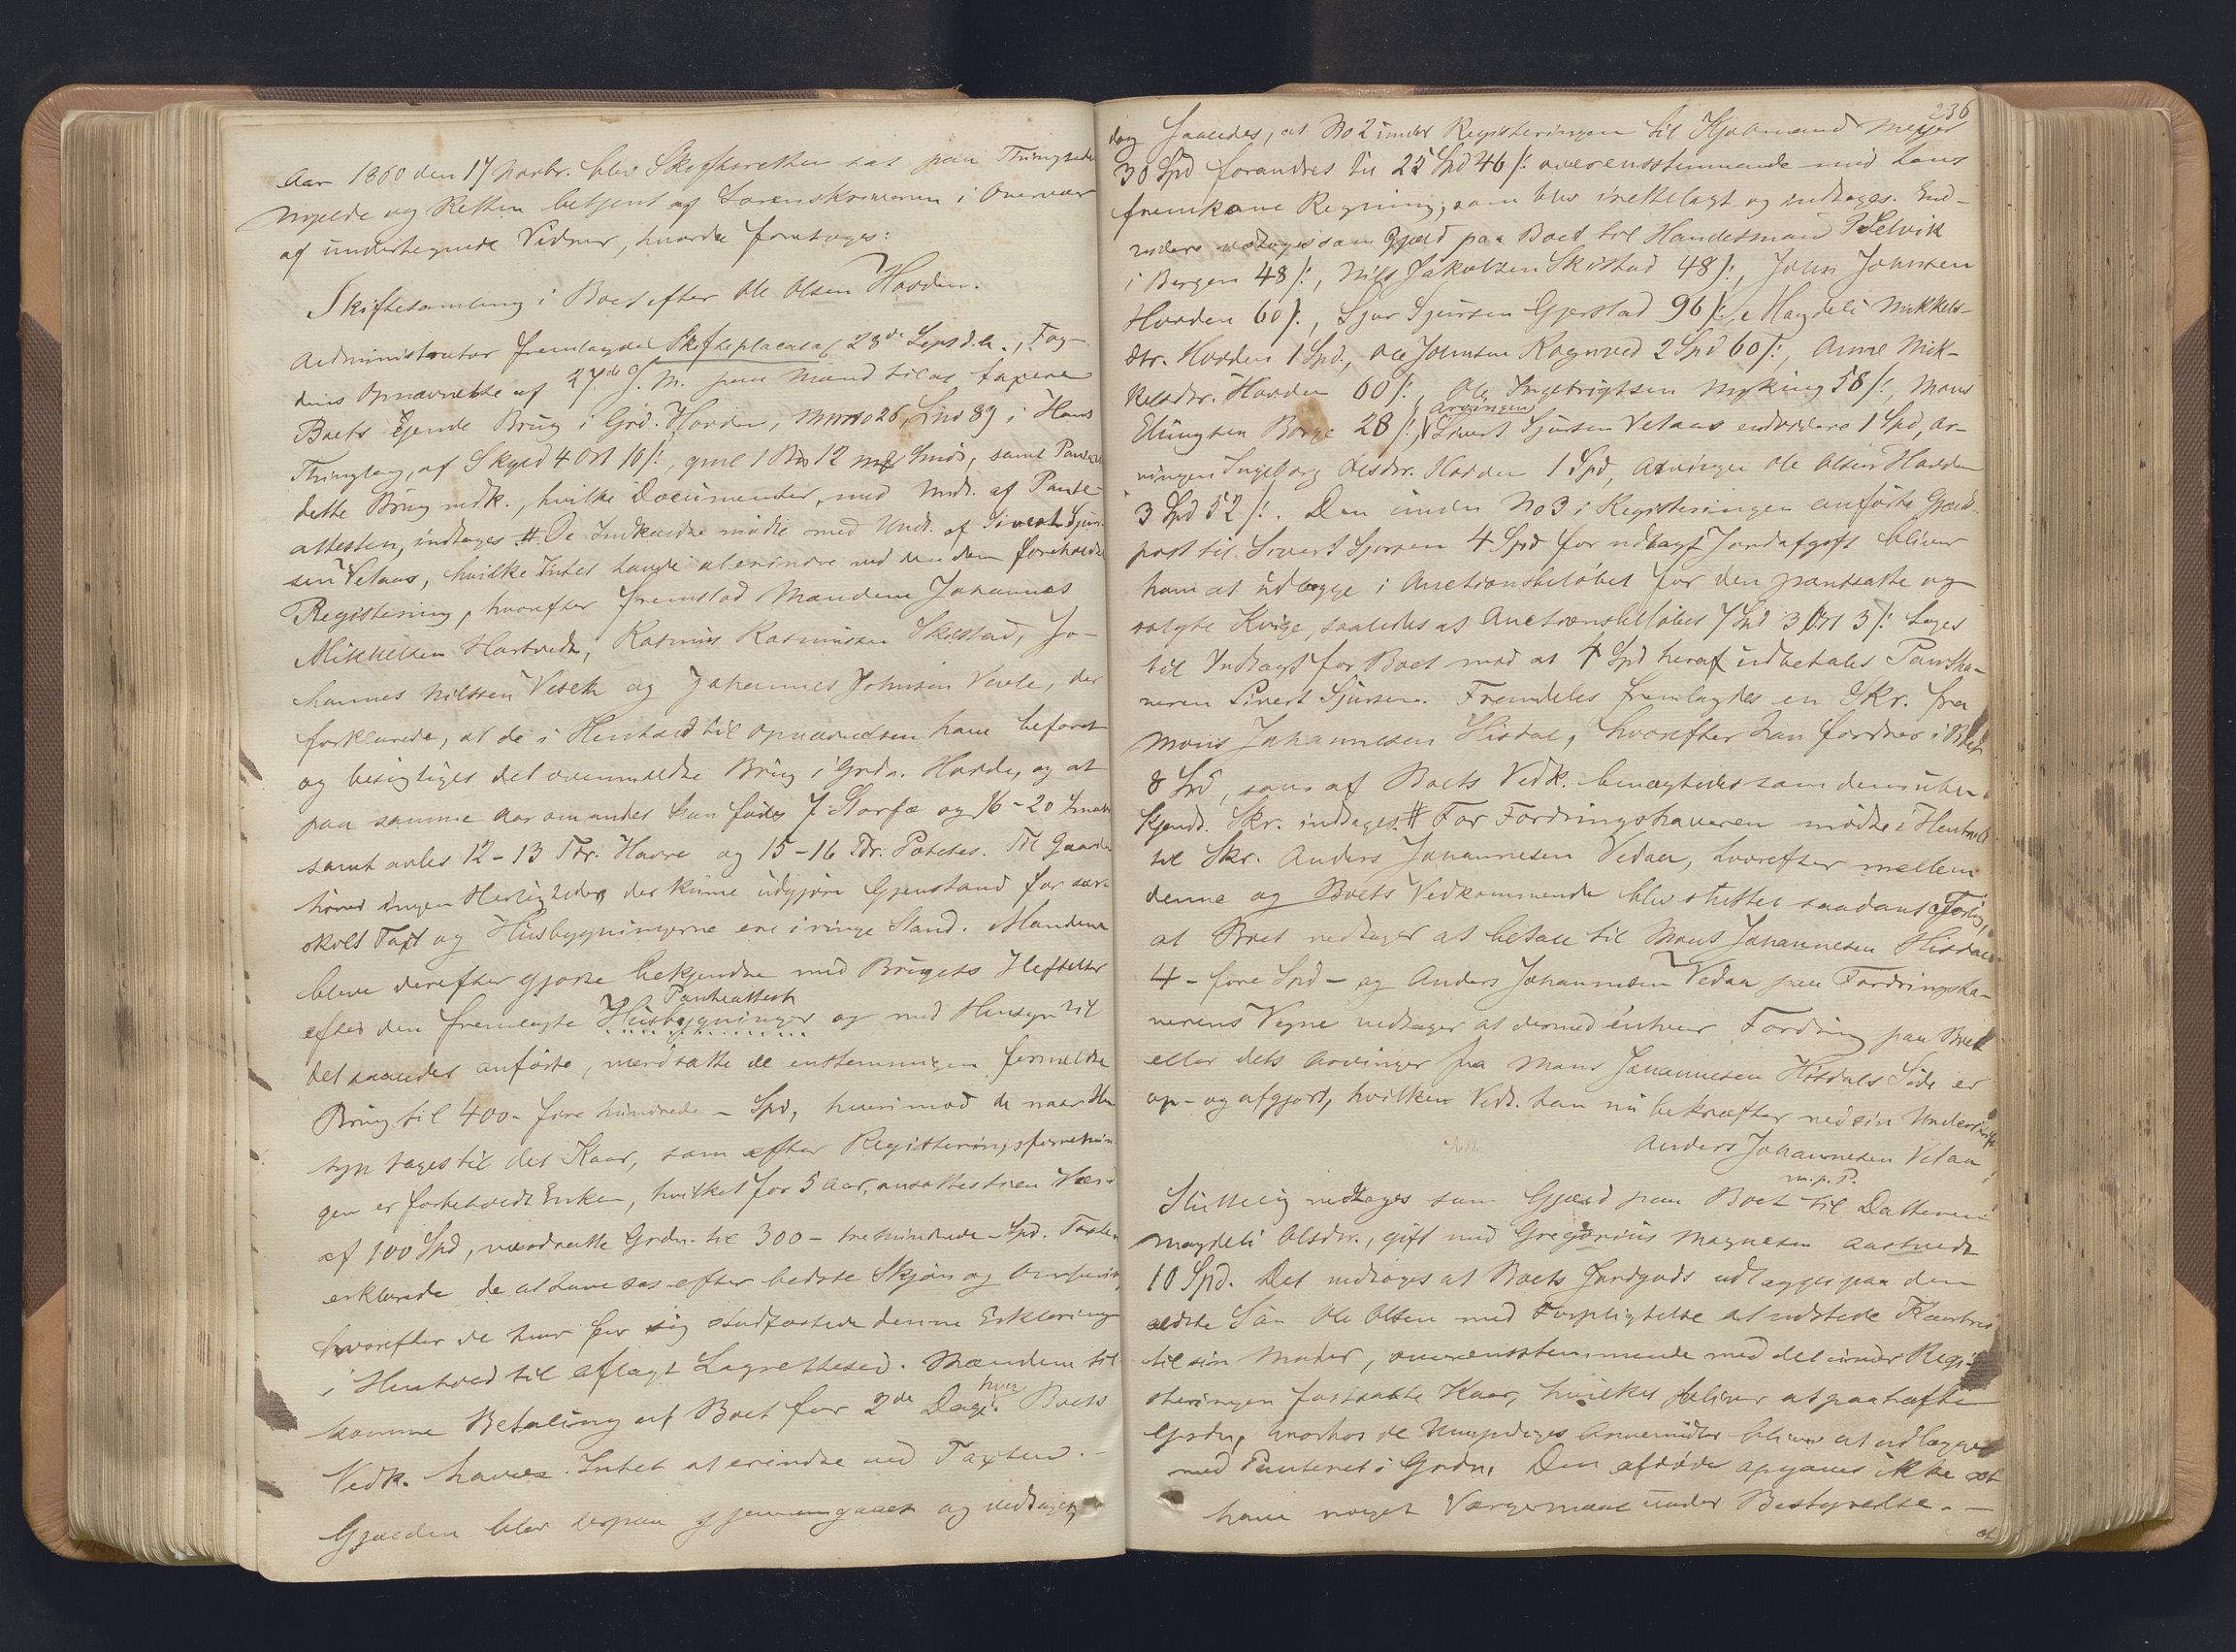 Aar 1860 den 17 Novbr. blev Skifteretten sat paa Thingstedet
Mjelde og Retten betjent af Sorenskriveren i Overvær
af undertegnede Vidner, hvorda foretoges:
Skiftesamling i Boet efter Ole Olsen Hovden.
Administrator fremlagde Skifteplacat af 28de Septb. d. A., Fog-
dens Opnævnelse af 27de f. M. paa Mænd til at taxere
Boets eiende Brug i Grd. Hovden, Mno 26, Lno 89 i Hans
Thinglag, af Skyld 4 Ort 10 ß, gml 1 12 Smør, samt Panteat
dette Brug vedk., hvilke Documenter, med Undt. af Pante-
attesten, indtages # De Indkaldte mødte med Undt. af Sivert Sjur-
sen Vetaas, hvilke Intet havde at erindre ved den dem foreholdte
Registrering, hvorefter fremstod Mændene Johannes
Mikkelsen Hartvedt, Rasmus Rasmussen Skistad, Jo-
hannes Nilssen Veseth og Johannes Johnsen Vevle, der
forklarede, at de i Henhold til Opnævnelsen have befaret
og besigtiget det ovenmeldte Brug i Grdn. Hovden, og at
paa samme Aar om andet kan fødes 7 Storfæ og 16-20 Smaler
samt avles 12-13 Tdr. Havre og 15-16 Tdr. Potetes. Til Gaarden
hører ingen Herligheder, der kunne udgjøre Gjenstand for sær-
skilt Taxt og Husbygningerne ere i ringe Stand. Mændene
bleve derefter gjorte bekjendte med Brugets Heftelser
Panteattest
efter den fremlagte Husbygninger og med Hensyn til
det saaledes anførte, værdsatte de enstemmigen formeldte
Brug til 400 - fire hundrede - Spd, hvorimod de naar Hen-
syn tages til det Kaar, som efter Registreringsforretnin-
gen er forbeholdt Enken, hvilket for 5 Aar, ansattes til en Værdi
af 100 Spd, værdsatte Grdn. til 300 - trehundrede - Spd. Taxten
erklærede de at have sat efter bedste Skjøn og Overbeviisn,
hvorefter de hver for sig stadfæstede denne Erklæring
i Henhold til aflagt Lagrettesed. Mændene til-
hver
komme Betaling af Boet for 2de Dage. Boets
Vedk. havde Intet at erindre ved Taxten. -
Gjælden blev derpaa gjennemgaaet og vedtaget,
236
dog saaledes, at No 2 under Registreringen til Kjøbmand Meyer
30 Spd forandres til 25 Spd 46 ß overensstemmende med hans
fremkomne Regning, som blev irettelagt og indtages. End-
videre vedtoges som Gjæld paa Boet til Handelsmand P. Selvik
i Bergen 48 ß, Nils Jakobsen Skistad 48 ß, John Johnsen
Hovden 60 ß, Sjur Sjursen Gjerstad 96 ß, Magdeli Mikkels-
dtr. Hovden 1 Spd, Ole Johnsen Rognved 2 Spd 60 ß, Anne Mik-
kelsdtr. Hovden 60 ß, Ole Ingebrigtsen Myking 58 ß, Mons
Arvingen
Ellingsen Borge 28 ß, Sivert Sjursen Vetaas endvidere 1 Spd, Ar-
vingen Ingeborg Olsdtr. Hovden 1 Spd, Arvingen Ole Olsen Hovden
3 Spd 52 ß. Den under No 3 i Registreringen anførte Gjælds-
post til Sivert Sjursen 4 Spd for udlagt Jordafgift bliver
ham at udlægge i Auctionsbeløbet for den pantsatte og
solgte Kvige, saaledes at Auctionsbeløbet 7 Spd 3 Ort 3 ß tages
til Indtægt for Boet mod at 4 Spd heraf udbetales Pantha-
veren Sivert Sjursen. Fremdeles fremlagdes en Skr. fra
Mons Johannesen Hisdal, hvorefter han fordrer i Boet
8 Spd, som af Boets Vedk. benægtedes som dem ube-
kjendt. Skr. indtages. # For Fordringshaveren mødte i Henhold
til Skr. Anders Johannesen Vedaa, hvorefter mellem
denne og Boets Vedkommende blev sluttet saadant Forlig,
at Boet vedtager at betale til Mons Johannesen Hisdal
4 - fire Spd - og Anders Johannesen Vedaa paa Fordringsha-
verens Vegne vedtager at dermed enhver Fordring paa Boet
eller dets Arvinger fra Mons Johannesen Hisdals Side er
op- og afgjort, hvilken Vedt. han nu bekræfter ved sin Underskrift
Anders Johannesen Vedaa
m. p. P.
Sluttelig vedtoges som Gjæld paa Boet til Datteren
Magdeli Olsdtr., gift med Gregorius Magnesen Aastvedt
10 Spd. Det vedtoges at Boets Jordgods udlægges paa den
ældste Søn Ole Olsen med Forpligtelse at udstede Kaarbrev
til sin Moder, overensstemmende med det under Regi-
streringen fastsatte Kaar, hvilket bliver at paahæfte
Grdn, hvorhos de Umyndiges Arvemidler bliver at udlægges
med Panteret i Grdn. Den afdøde opgaves ikke at
have noget Værgemaal under Bestyrelse. -